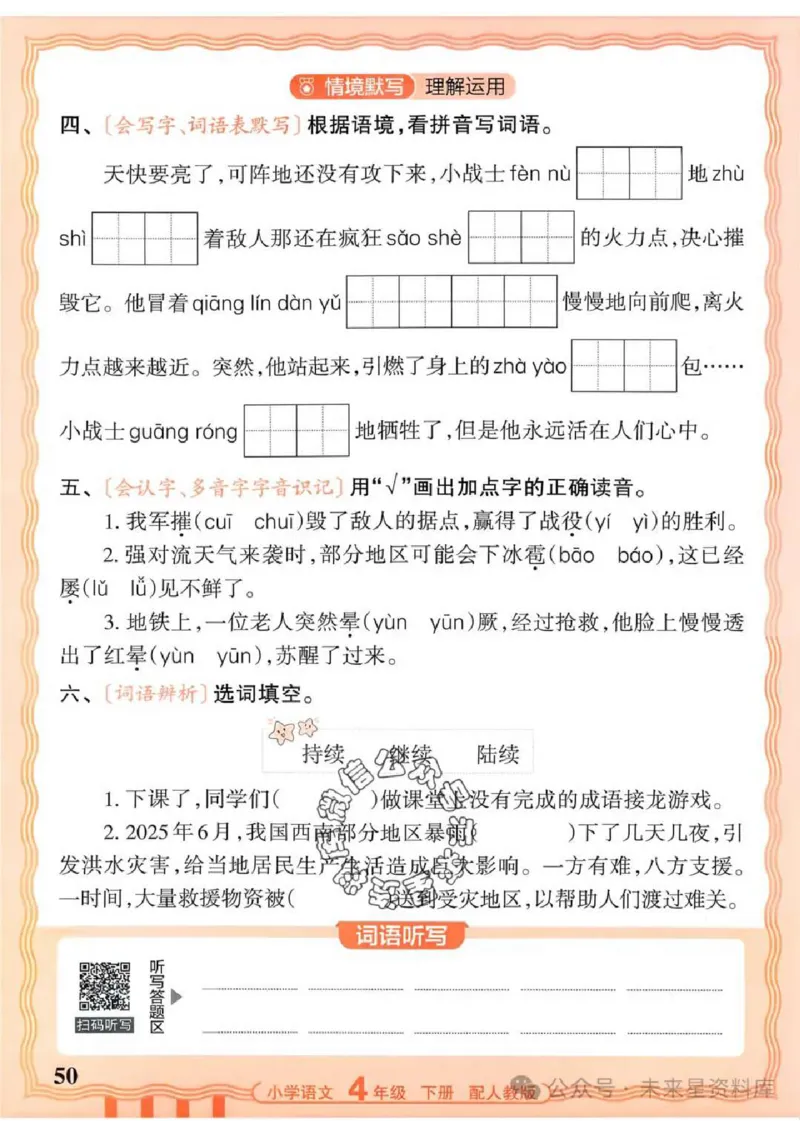 情境默写 理解运用
四、〔会写字、词语表默写〕根据语境,看拼音写词语。
天快要亮了,可阵地还没有攻下来,小战士fèn nù 地zhù
shì 着敌人那还在疯狂sǎo shè 的火力点,决心摧
毁它。他冒着qiāng lín dàn yǔ 慢慢地向前爬,离火
力点越来越近。突然,他站起来,引燃了身上的zhà yào 包……
小战士guāng róng 地牺牲了,但是他永远活在人们心中。
五、〔会认字、多音字字音识记〕用“√”画出加点字的正确读音。
1. 我军摧(cuī chuī)毁了敌人的据点,赢得了战役(yí yì)的胜利。
2. 强对流天气来袭时,部分地区可能会下冰雹(bāo báo),这已经
屡(lǔ lǚ)见不鲜了。
3. 地铁上,一位老人突然晕(yùn yūn)厥,经过抢救,他脸上慢慢透
出了红晕(yùn yūn),苏醒了过来。
六、〔词语辨析〕选词填空。
持续 继续 陆续
1. 下课了,同学们( )做课堂上没有完成的成语接龙游戏。
2. 2025年6月,我国西南部分地区暴雨( )下了几天几夜,引
发洪水灾害,给当地居民生产生活造成巨大影响。一方有难,八方支援。
一时间,大量救援物资被( )送到受灾地区,以帮助人们渡过难关。
词语听写
听写答题区
扫码听写
50
小学语文 4年级 下册 配人教版
公众号·未来星资料库